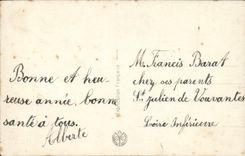 Bonne et heu-
reuse année, bonne
santé à tous.
Alberte
M. Francis Barat
chez ses parents
St Julien de Vouvantes
Loire Inférieure